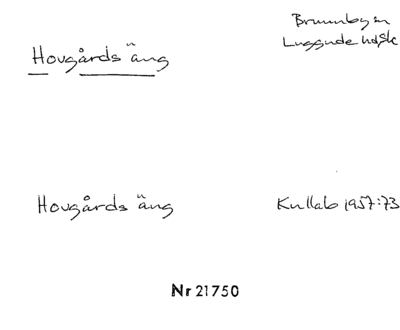 Brunnby sn
Luggude hdsk
Hovgårds äng
Hovgårds äng
Kullab 1957:73
Nr 21750